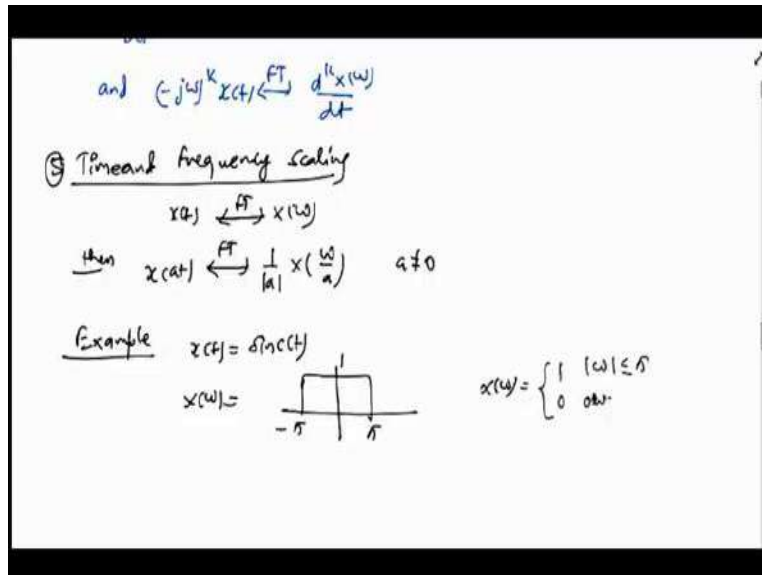 and (-jω)^k x(t) <-FT-> d^k x(ω) / dt
⑤ Time and frequency scaling
x(t) <-FT-> x(ω)
then x(at) <-FT-> 1/|a| x(ω/a) a≠0
Example x(t) = sinc(t)
1
x(ω) =
-π π
x(ω) = { 1 |ω| ≤ π
0 ow.